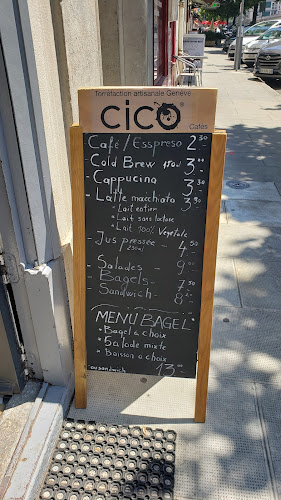 Torréfaction artisanale Genève
CICO
Cafés
Café / Esspreso 2.50
- Cold Brew 150ml 3.00
- Cappucina 3.50
- Latte macchiato 3.90
• Lait entier
• Lait sans lactose
• Lait 100% Vegetale
- Jus pressée - 4.50
(250ml)
- Salades - 9.00
- Bagels - 7.50
- Sandwich - 8.20
MENU BAGEL
• Bagel à choix
• Salade mixte
• Boisson à choix
ou sandwich 13.00